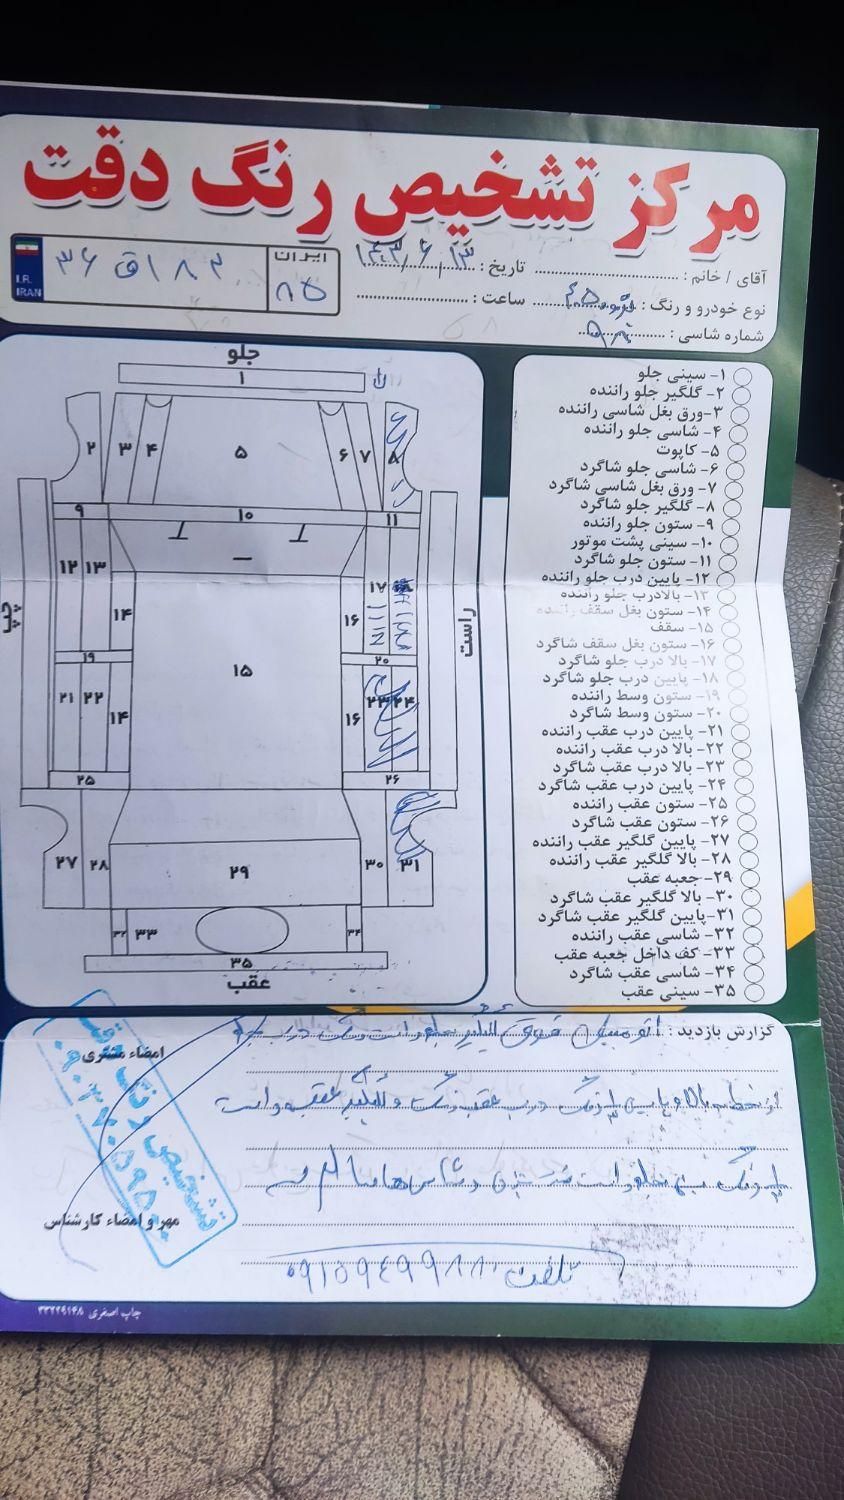 مرکز تشخیص رنگ دقت
آقای / خانم : تاریخ : ۱۴۰۳/۶/۱۳
نوع خودرو و رنگ : پژو ۴۰۵ ساعت :
شماره شاسی :
I.R.
IRAN
ایران
۸۵
جلو
۱
۲
۳
۴
۵
۶
۷
۸
۹
۱۰
۱۱
۱۲
۱۳
۱۴
۱۵
۱۶
۱۷
۱۹
۲۰
۲۱
۲۲
۱۴
۱۶
۲۳
۲۴
۲۵
۲۶
۲۷
۲۸
۲۹
۳۰
۳۱
۳۲
۳۳
۳۴
۳۵
عقب
چپ
راست
۱- سینی جلو
۲- گلگیر جلو راننده
۳-ورق بغل شاسی راننده
۴- شاسی جلو راننده
۵- کاپوت
۶- شاسی جلو شاگرد
۷- ورق بغل شاسی شاگرد
۸- گلگیر جلو شاگرد
۹- ستون جلو راننده
۱۰- سینی پشت موتور
۱۱- ستون جلو شاگرد
۱۲- پایین درب جلو راننده
۱۳- بالادرب جلو راننده
۱۴- ستون بغل سقف راننده
۱۵- سقف
۱۶- ستون بغل سقف شاگرد
۱۷- بالا درب جلو شاگرد
۱۸- پایین درب جلو شاگرد
۱۹- ستون وسط راننده
۲۰- ستون وسط شاگرد
۲۱- پایین درب عقب راننده
۲۲- بالا درب عقب راننده
۲۳- بالا درب عقب شاگرد
۲۴- پایین درب عقب شاگرد
۲۵- ستون عقب راننده
۲۶- ستون عقب شاگرد
۲۷- پایین گلگیر عقب راننده
۲۸- بالا گلگیر عقب راننده
۲۹- جعبه عقب
۳۰- بالا گلگیر عقب شاگرد
۳۱-پایین گلگیر عقب شاگرد
۳۲- شاسی عقب راننده
۳۳- کف داخل جعبه عقب
۳۴- شاسی عقب شاگرد
۳۵- سینی عقب
گزارش بازدید : اتومبیل فوق گلگیر جلو راست رنگ درب جلو
از خط بالا و پایین رنگ درب عقب رنگ و گلگیر عقب راست
رنگ جلو راست ستون و شاسی ها سالم
تلفن ۰۹۱۵۹۴۹۹۸۸۰
امضاء مشتری
مهر و امضاء کارشناس
تشخیص رنگ دقت
چاپ اصغری ۳۲۲۲۶۱۴۸